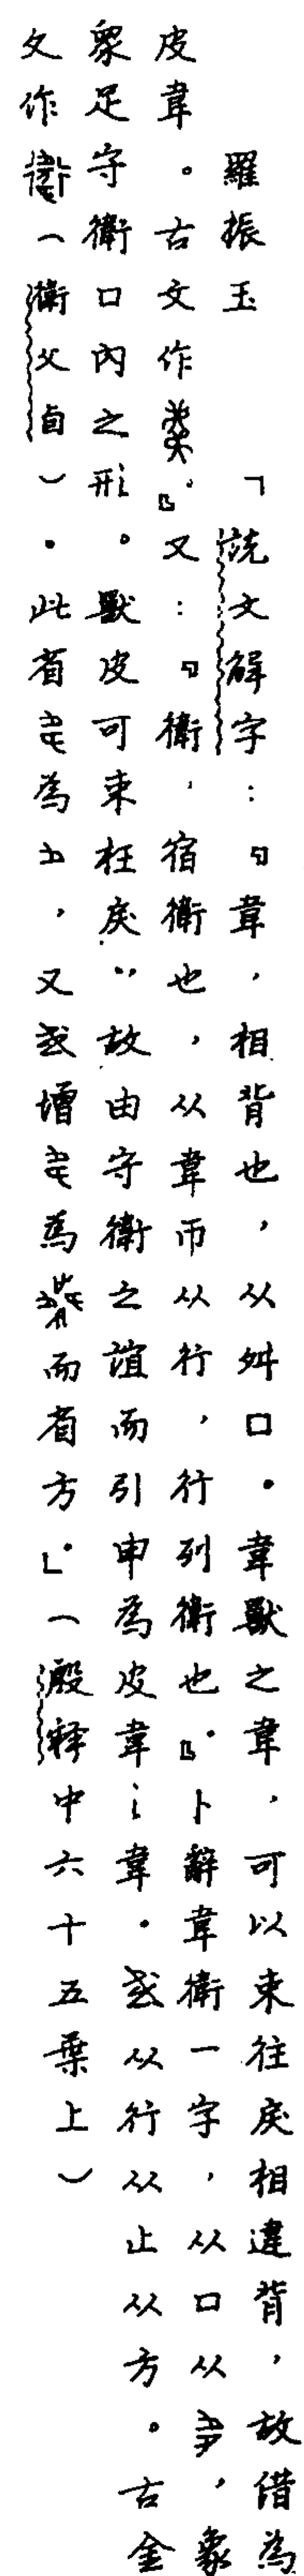 羅振玉　「說文解字：『韋，相背也，从舛口。韋獸之韋，可以束往戾相違背，故借為
皮韋。古文作。』又：『衛，宿衛也，从韋帀从行，行列衛也。』卜辭韋衛一字，从口从，象
眾足守衛口內之形。獸皮可束枉戾，故由守衛之誼而引申為皮韋之韋。或从行从止从方。古金
文作（衛父卣）。此省為，又或增為而省方。」（殷釋中六十五葉上）